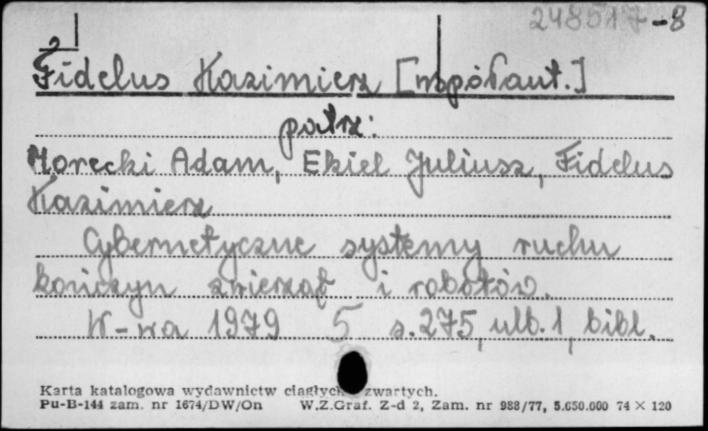 248517-8
2
Fidelus Kazimierz [współaut.]
patrz:
Morecki Adam, Ekiel Juliusz, Fidelus
Kazimierz
Cybernetyczne systemy ruchu
kończyn zwierząt i robotów.
W-wa 1979 5 s. 275, ulb. 1, bibl.
Karta katalogowa wydawnictw ciągłych zwartych.
Pu-B-144 zam. nr 1674/DW/On W.Z.Graf. Z-d 2, Zam. nr 988/77, 5.650.000 74 × 120